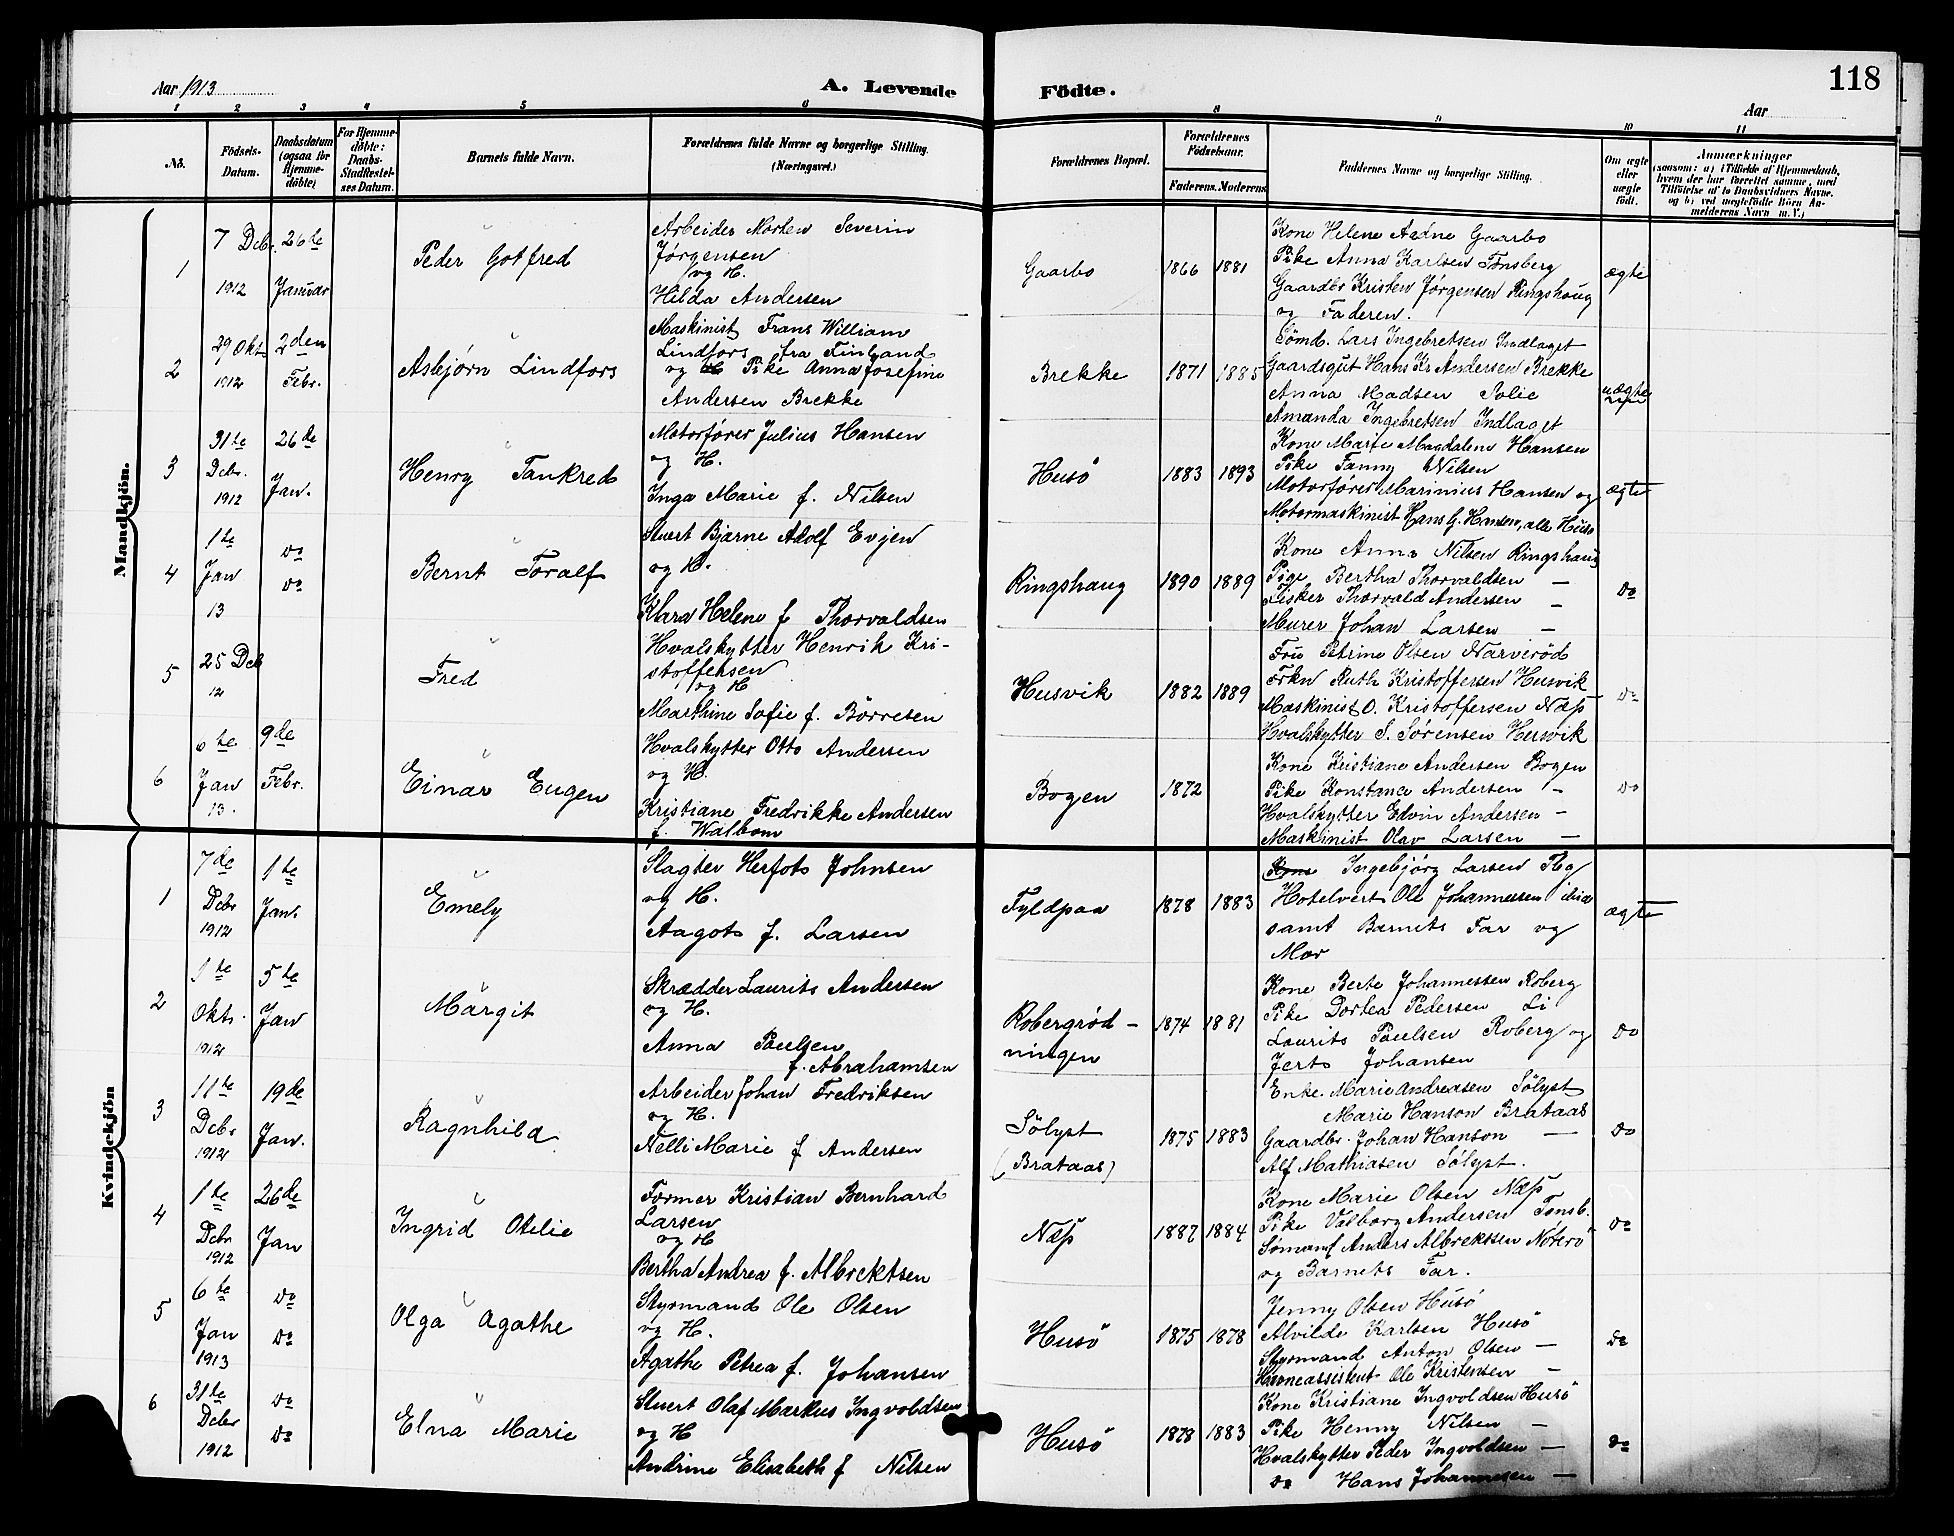 Aar 1913
A. Levende Födte.
118
Aar
1 2 3 4 5 6 8 9 10 11
No.
Födsels-Datum.
Daabsdatum (ogsaa for Hjemme-döbte)
For Hjemme-döbte: Daabs-Stadfæstel-ses Datum.
Barnets fulde Navn.
Forældrenes fulde Navne og borgerlige Stilling. (Næringsvei.)
Forældrenes Bopæl.
Forældrenes Födselsaar.
Faderens. Moderens
Faddernes Navne og borgerlige Stilling.
Om ægte eller uægte födt.
Anmærkninger
(saasom: a) i Tilfælde af Hjemmedaab, hvem der har forrettet samme, med Tilföielse af to Daabsvidners Navne. og b) ved uægtefödte Börn An-melderens Navn m. V.)
Mandkjön.
1
7 Debr. 1912
26de Januar
Peder Gotfred
Arbeider Morten Severin
Jørgensen
og H.
Hilda Andersen
Gaarbo
1866 1881
Kone Helene Aadne Gaarbo
Pike Anna Karlsen Tønsberg
Gaardbr Kristen Jørgensen Ringshaug
og Faderen.
ægte
2
29 Okt 1912
2den Febr.
Asbjørn Lindfors
Maskinist Frans William
Lindfors fra Finland
og Pike Anna Josefine
Andersen Brekke
Brekke
1871 1885
Sømd. Lars Ingebretsen Indlaget
Gaardsgut Hans Kr Andersen Brekke
Anna Madsen Jolie
Amanda Ingebretsen Indlaget
uægte
3
31te Debr. 1912
26de Jan.
Henry Tankred
Motorfører Julius Hansen
og H.
Inga Marie f. Nilsen
Husö
1883 1893
Kone Marie Magdalene Hansen
Pike Fanny Nilsen
Motorfører Marinius Hansen og
Motormaskinist Hans G. Hansen, alle Husö
ægte
4
1te Jan 13
do do
Bernt Toralf
Stuert Bjarne Adolf Evjen
og H.
Klara Helene f Thorvaldsen
Ringshaug
1890 1889
Kone Anna Nilsen Ringshaug
Pige Bertha Thorvaldsen —
Fisker Thorvald Andersen —
Murer Johan Larsen —
do
5
25 Deb 12
Fred
Hvalskytter Henrik Kri-
stoffersen
og H
Marthine Sofie f. Börresen
Husvik
1882 1889
Fru Petrine Olsen Narverød
Frkn Ruth Kristoffersen Husvik
Maskinist O. Kristoffersen Næss
Hvalskytter S. Sørensen Husvik
do
6
6te Jan 13.
9de Febr.
Einar Eugen
Hvalskytter Otto Andersen
og H.
Kristiane Fredrikke Andersen
f. Walbom
Bogen
1872
Kone Kristiane Andersen Bogen
Pike Konstance Andersen —
Hvalskytter Edvin Andersen —
Maskinist Olav Larsen —
do
Kvindekjön
1
7de Debr 1912
1te Jan.
Emely
Slagter Herfots Johnsen
og H.
Aagots f. Larsen
Fyldpaa
1878 1883
Kone Ingebjørg Larsen Tbg
Hotelvert Ole Johannessen ibid
samt Barnets Far og
Mor
ægte
2
1te Oktr. 1912
5te Jan
Margit
Skrædder Laurits Andersen
og H.
Anna Paulsen
f. Abrahamsen
Robergrød-
ningen
1874 1881
Kone Berte Johannessen Roberg
Pike Dortea Pedersen Li
Laurits Paulsen Roberg og
Jerts Johansen
do
3
11te Debr 1912
19de Jan.
Ragnhild
Arbeider Johan Fredriksen
og H.
Nelli Marie f Andersen
Sölyst
(Brataas)
1875 1883
Enke Marie Andreasen Sölyst
Marie Hanson Brataas
Gaardbr. Johan Hanson —
Alf Mathiasen Sölyst.
do
4
1te Debr 1912
26de Jan
Ingrid Otelie
Former Kristian Bernhard
Larsen
og H
Bertha Andrea f. Albrektsen
Næss
1887 1884
Kone Marie Olsen Næss
Pike Valborg Andersen Tønsb.
Sømand Anders Albrektssen Nøterö
og Barnets Far.
do
5
6te Jan 1913
do do
Olga Agathe
Styrmand Ole Olsen
og H.
Agathe Petrea f. Johansen
Husö
1875 1878
Jenny Olsen Husö
Alvilde Karlsen Husö
Styrmand Anton Olsen —
Havneassistent Ole Kristensen —
do
6
31te Debr 1912
do do
Elna Marie
Stuert Olaf Markus Ingvoldsen
og H
Andrine Elisabeth f Nilsen
Husö
1878 1883
Kone Kristiane Ingvoldsen Husö
Pike Henny Nilsen —
Hvalskytter Peder Ingvoldsen —
do Hans Johannesen —
do